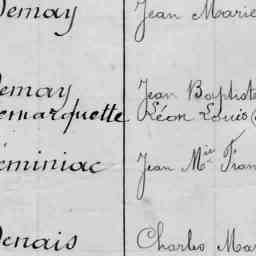 Demay Jean Marie
Demay Jean Baptiste
Demarquette Léon Louis
Déminiac Jean Mie Fran
Denais Charles Mar